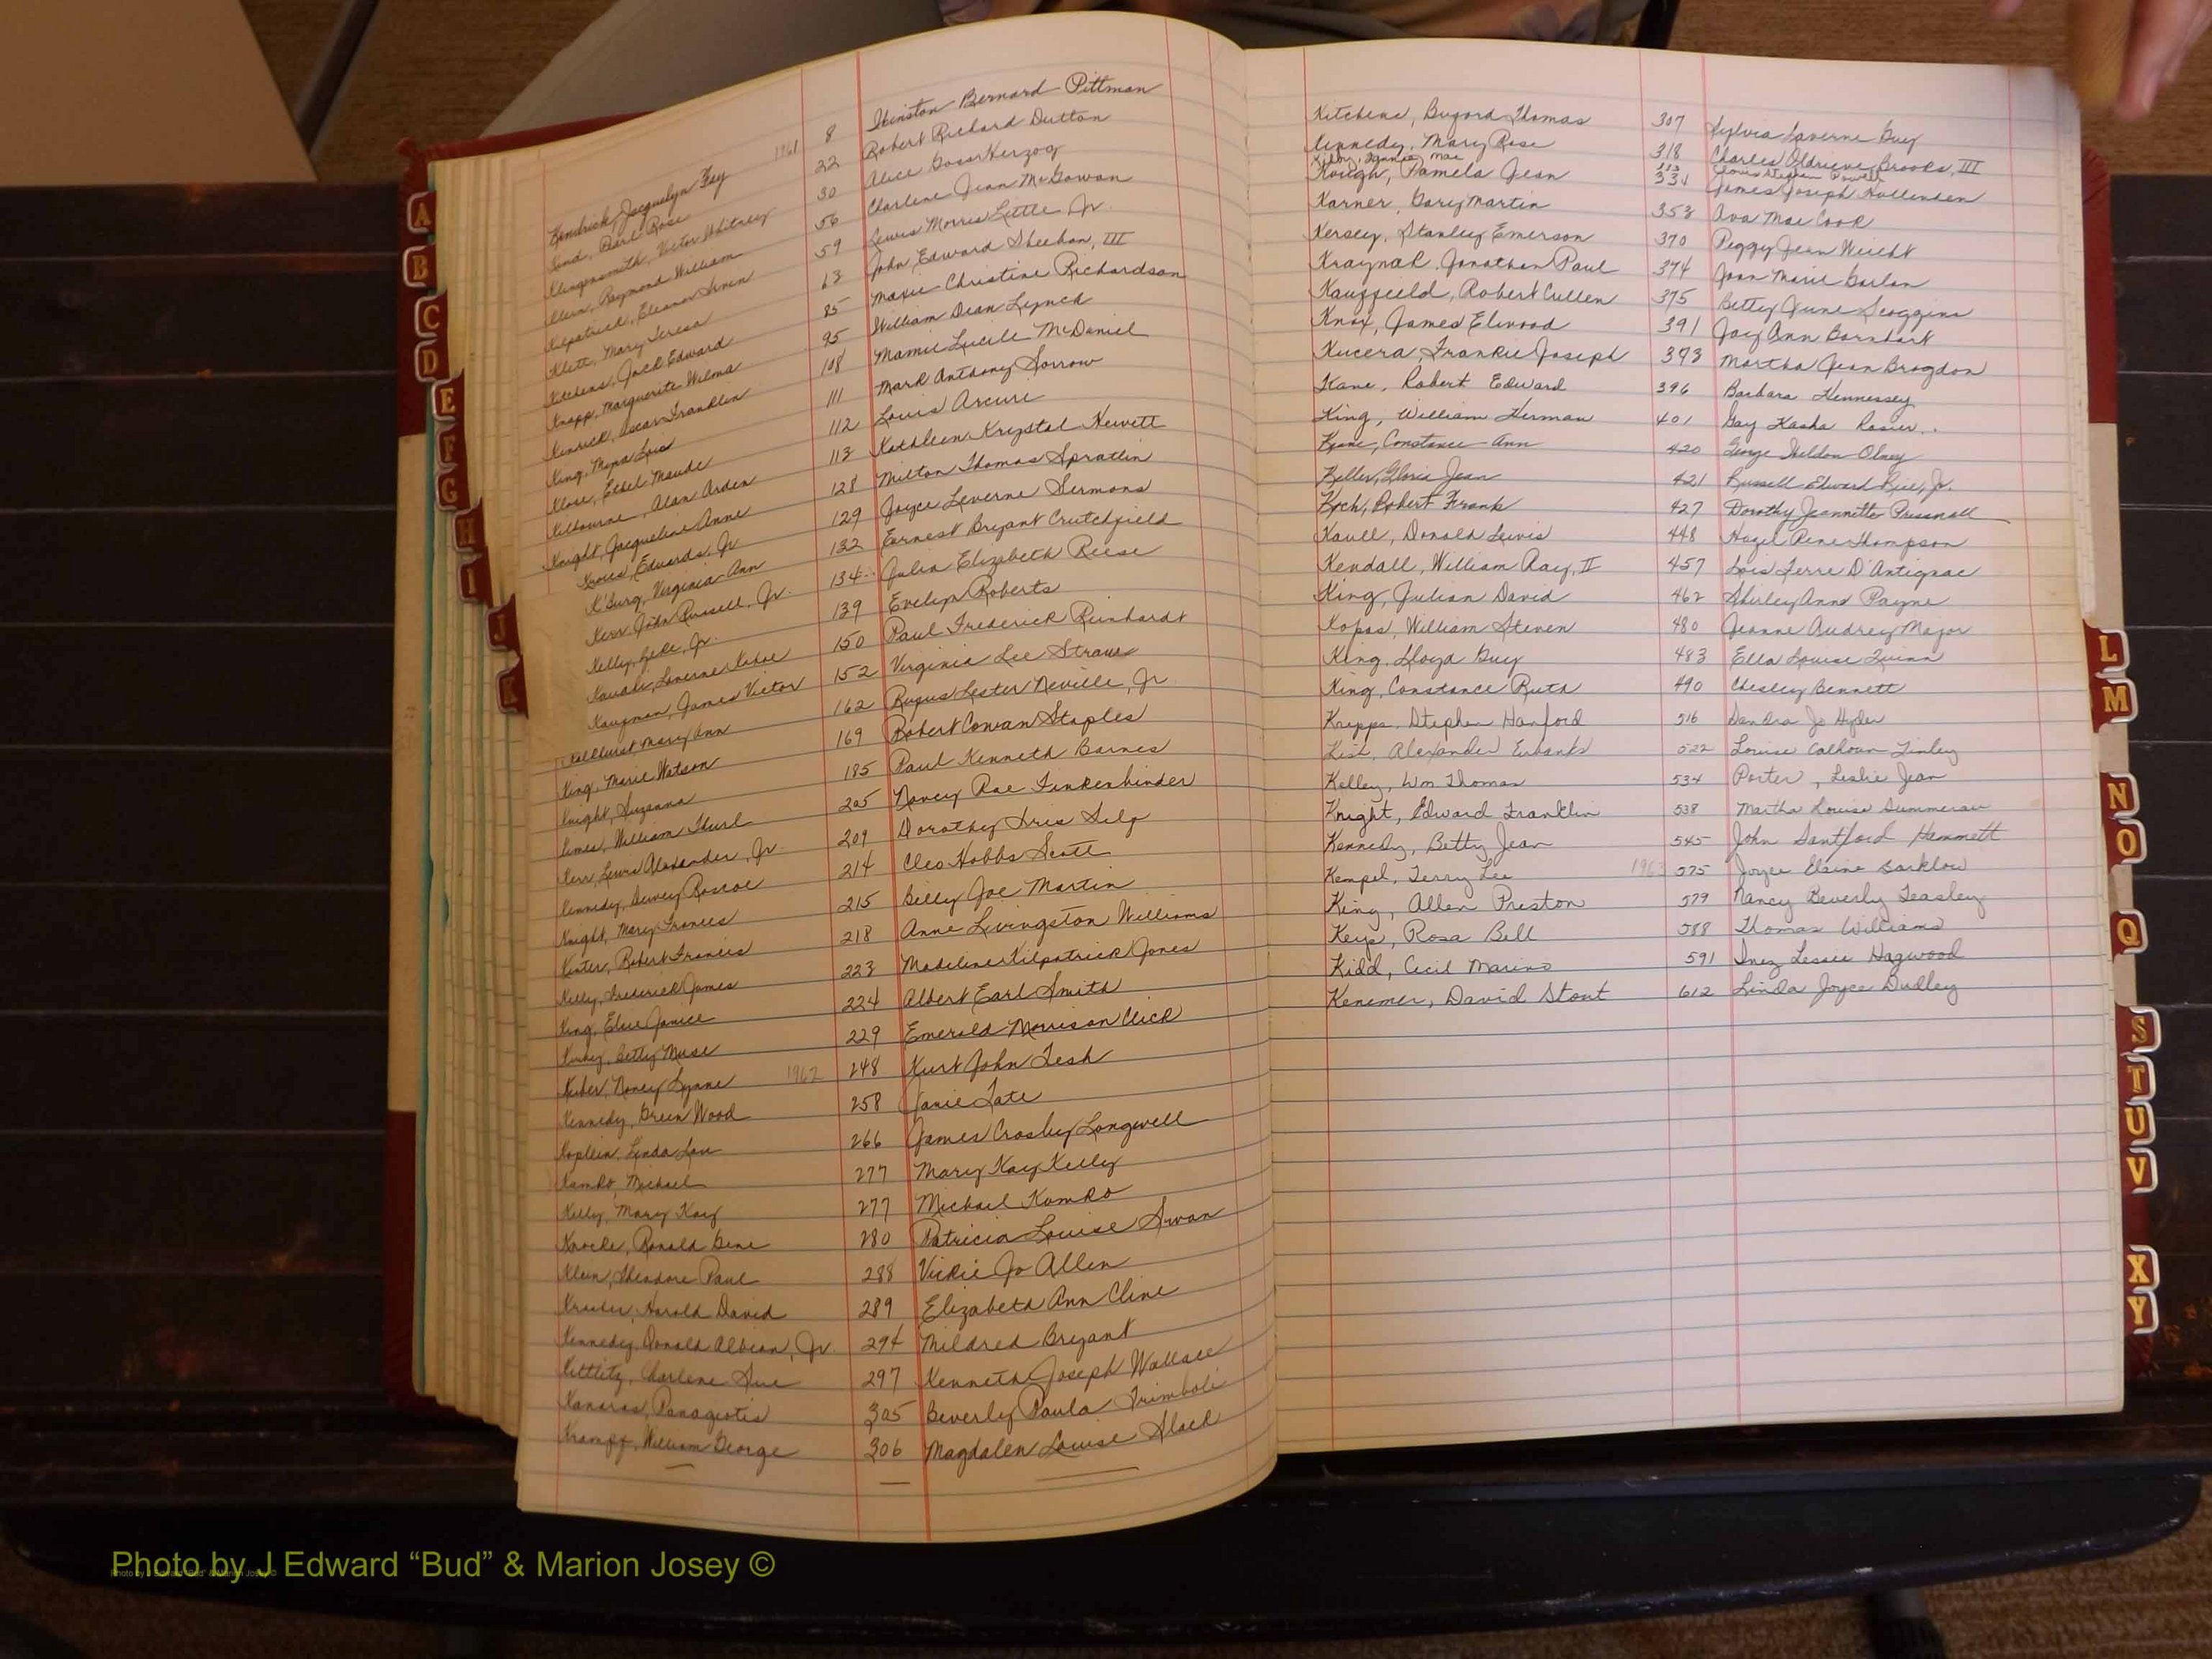 1961
Kendrick, Jacquelyn Fay 8 Winston Bernard Pittman
Kind, Pearl Rose 22 Robert Richard Dutton
Klingensmith, Victor Whitney 30 Alice Goss Herzog
Klein, Raymond William 56 Charlene Jean McGowan
Kilpatrick, Eleanor Irven 59 Lewis Morris Little Jr.
Klett, Mary Teresa 63 John Edward Sheehan, III
Kitchens, Jack Edward 85 Maxie Christine Richardson
Knapp, Marguerite Wilma 95 William Dean Lynch
Kenrick, Oscar Franklin 108 Mamie Lucile McDaniel
King, Mona Lois 111 Mark Anthony Sorrow
Klose, Ethel Maude 112 Louis Arcuri
Kilbourne, Alan Arden 113 Kathleen Krystal Hewett
Knight, Jacqueline Anne 128 Milton Thomas Spratlin
Edwards, Jr. 129 Joyce Leverne Sermons
K'Burg, Virginia Ann 132 Earnest Bryant Crutchfield
Kerr, John Russell, Jr. 134 Julia Elizabeth Reese
Kelly, Jr. 139 Evelyn Roberts
Laverne 150 Paul Frederick Reinhardt
Kaufman, James Victor 152 Virginia Lee Straus
Mary Ann 162 Rufus Lester Neville, Jr
King, Marie Watson 169 Robert Cowan Staples
Knight, Suzanna 185 Paul Kenneth Barnes
Kimes, William Thurl 205 Nancy Rae Finkenbinder
Kerr, Lewis Alexander, Jr. 209 Dorothy Iris Self
Kennedy, Dewey Roscoe 214 Cleo Hobbs Scott
Knight, Mary Frances 215 Billy Joe Martin
Kinter, Robert Francis 218 Anne Livingston Williams
Kelly, Frederick James 223 Madeline Kilpatrick Jones
King, Elsie Janice 224 Albert Earl Smith
Kirby, Betty Muse 229 Emerald Morrison Click
Keber, Nancy Lynne 1962 248 Kurt John Tesh
Kennedy, Green Wood 258 Janie Tate
Koplein, Linda Lou 266 James Crosley Longwell
Kamko, Michael 277 Mary Kay Kelly
Kelly, Mary Kay 277 Michael Kamko
Knocke, Ronald Gene 280 Patricia Louise Swan
Klein, Theodore Paul 288 Vickie Jo Allen
Harold David 289 Elizabeth Ann Cline
Kennedy, Donald Albion, Jr. 294 Mildred Bryant
Kittlitz, Charlene Sue 297 Kenneth Joseph Wallace
Kanaras, Panagiotis 305 Beverly Paula Trimboli
Krampf, William George 306 Magdalen Louise Slack
Kitchens, Buford Thomas 307 Sylvia Laverne Guy
Kennedy, Mary Rose 318 Charles Oldrieve Brooks, III
Kilby, Fannie Mae 333 Louis Stephen Powell
Keough, Pamela Jean 334 James Joseph Hollenden
Karner, Gary Martin 353 Ava Mae Cook
Kersey, Stanley Emerson 370 Peggy Jean Weicht
Kraynak, Jonathan Paul 374 Joan Marie Garlan
Kauffeld, Robert Cullen 375 Betty June Scoggins
Knox, James Elwood 391 Joy Ann Barnhart
Kucera, Frankie Joseph 393 Martha Jean Brogdon
Kane, Robert Edward 396 Barbara Hennessey
King, William Herman 401 Gay Kasha Rosier
Kyane, Constance Ann 420 George Weldon Olney
Keller, Gloria Jean 421 Russell Edward Rice, Jr.
Koch, Robert Frank 427 Dorothy Jeannette Pressnall
Kavell, Donald Lewis 448 Hazel Rene Thompson
Kendall, William Ray, II 457 Lois Ferre D'Antignac
King, Julian David 462 Shirley Ann Payne
Kopas, William Steven 480 Jeanne Audrey Major
King, Lloyd Guy 483 Ella Louise Quinn
King, Constance Ruth 490 Chesley Bennett
Krepps, Stephen Hanford 516 Sandra Jo Hyder
Kist, Alexander Eubanks 522 Louise Calhoun Finley
Kelley, Wm Thomas 534 Porter, Leslie Jean
Knight, Edward Franklin 538 Martha Louise Summerau
Kennedy, Betty Jean 545 John Santford Hammett
Kempel, Terry Lee 1963 575 Joyce Elaine Barklow
King, Allen Preston 579 Nancy Beverly Teasley
Keys, Rosa Bell 588 Thomas Williams
Kidd, Cecil Marino 591 Inez Lessie Hagwood
Kenemer, David Stout 612 Linda Joyce Dudley
A
B
C
D
E
F
G
H
I
J
K
L
M
N
O
Q
S
T
U
V
X
Y
Photo by J Edward “Bud” & Marion Josey ©
Photo by J Edward “Bud” & Marion Josey ©